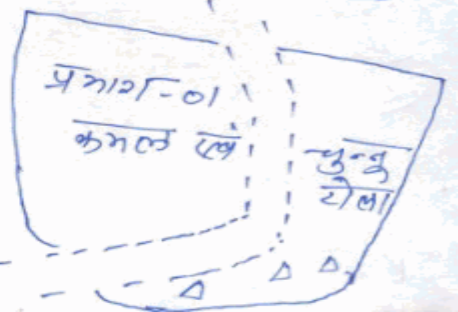 प्रभाग-01
कमल क्लब
चुन्नू
टोला